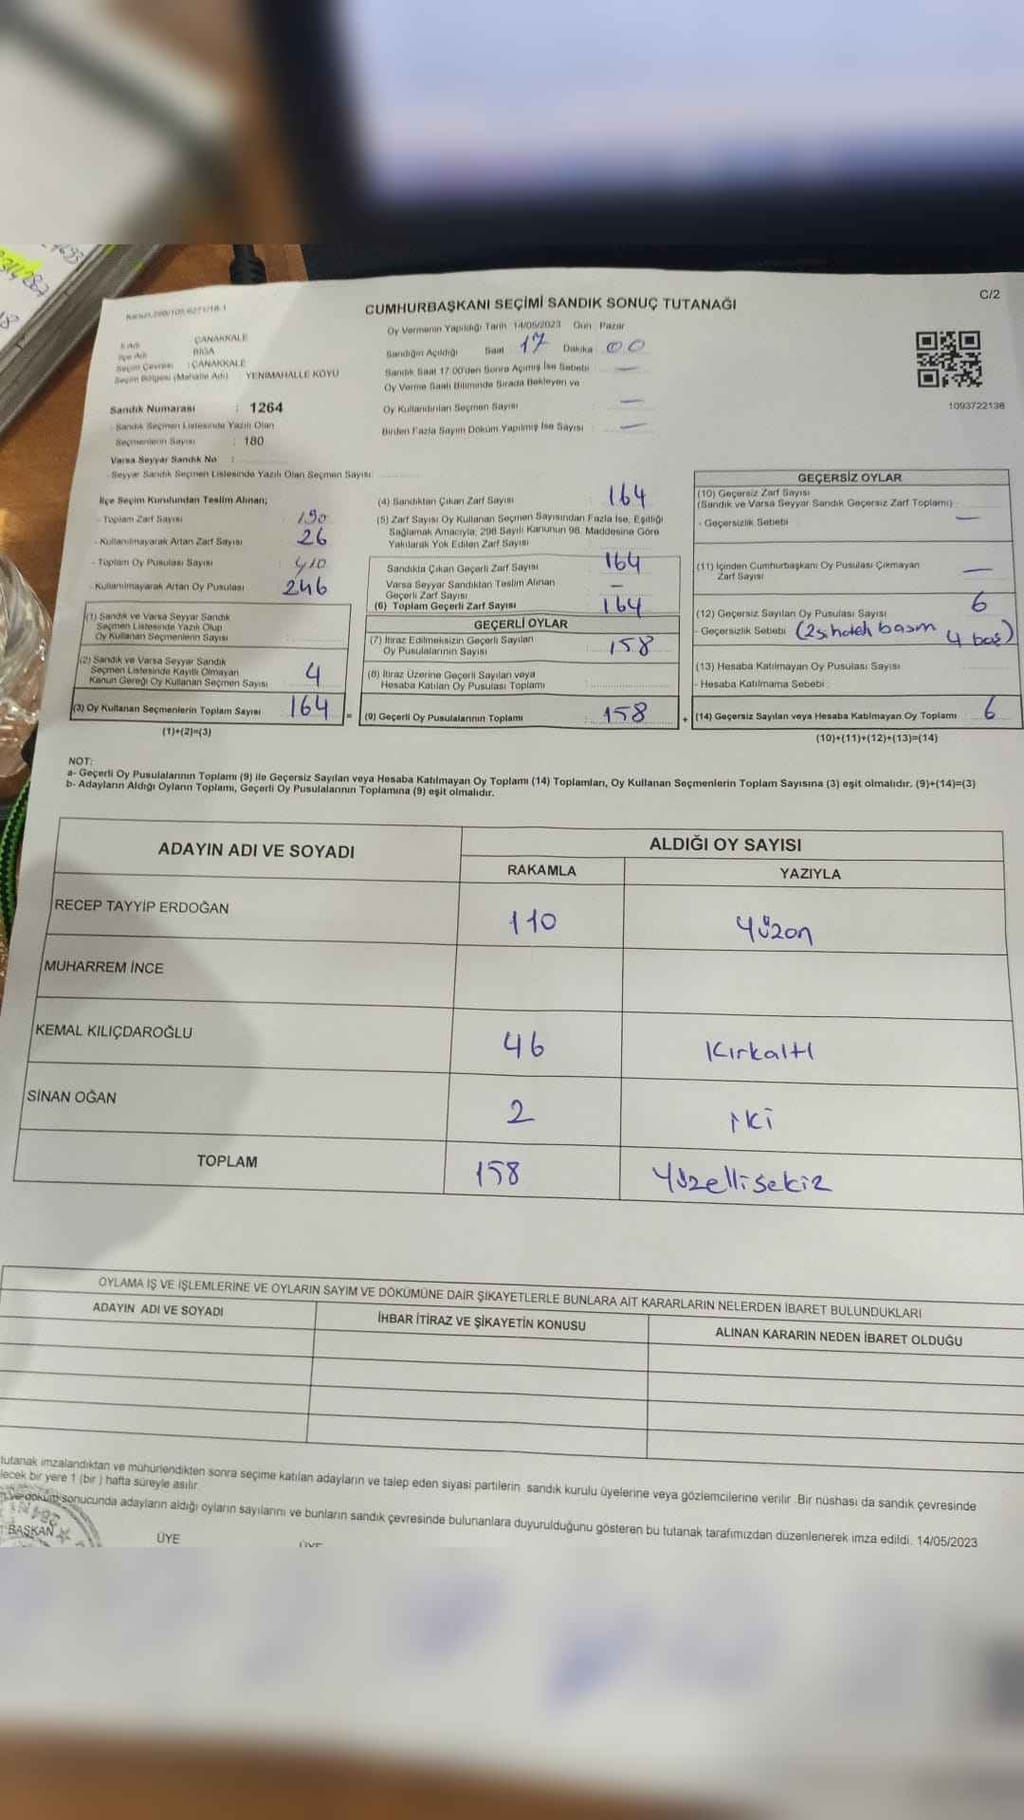 C/2
CUMHURBAŞKANI SEÇİMİ SANDIK SONUÇ TUTANAĞI
Oy Vermenin Yapıldığı Tarih 14/05/2023 Gün Pazar
Sandığın Açıldığı Saat 17 Dakika 00
Sandık Saat 17.00'den Sonra Açılmış İse Sebebi —
Oy Verme Saati Bitiminde Sırada Bekleyen ve
Oy Kullandırılan Seçmen Sayısı —
Birden Fazla Sayım Döküm Yapılmış İse Sayısı —
İl Adı ÇANAKKALE
İlçe Adı BİGA
Seçim Çevresi : ÇANAKKALE
Seçim Bölgesi (Mahalle Adı) YENİMAHALLE KÖYÜ
Sandık Numarası : 1264
Sandık Seçmen Listesinde Yazılı Olan
Seçmenlerin Sayısı : 180
Varsa Seyyar Sandık No :
- Seyyar Sandık Seçmen Listesinde Yazılı Olan Seçmen Sayısı
1093722136
İlçe Seçim Kurulundan Teslim Alınan;
- Toplam Zarf Sayısı 190
- Kullanılmayarak Artan Zarf Sayısı 26
- Toplam Oy Pusulası Sayısı 410
- Kullanılmayarak Artan Oy Pusulası 246
(1) Sandık ve Varsa Seyyar Sandık
Seçmen Listesinde Yazılı Olup
Oy Kullanan Seçmenlerin Sayısı
(2) Sandık ve Varsa Seyyar Sandık
Seçmen Listesinde Kayıtlı Olmayan
Kanun Gereği Oy Kullanan Seçmen Sayısı 4
(3) Oy Kullanan Seçmenlerin Toplam Sayısı 164
(1)+(2)=(3)
(4) Sandıktan Çıkan Zarf Sayısı 164
(5) Zarf Sayısı Oy Kullanan Seçmen Sayısından Fazla İse, Eşitliği
Sağlamak Amacıyla, 298 Sayılı Kanunun 98. Maddesine Göre
Yakılarak Yok Edilen Zarf Sayısı
Sandıkta Çıkan Geçerli Zarf Sayısı 164
Varsa Seyyar Sandıktan Teslim Alınan
Geçerli Zarf Sayısı —
(6) Toplam Geçerli Zarf Sayısı 164
GEÇERLİ OYLAR
(7) İtiraz Edilmeksizin Geçerli Sayılan
Oy Pusulalarının Sayısı 158
(8) İtiraz Üzerine Geçerli Sayılan veya
Hesaba Katılan Oy Pusulası Toplamı
= (9) Geçerli Oy Pusulalarının Toplamı 158
GEÇERSİZ OYLAR
(10) Geçersiz Zarf Sayısı
(Sandık ve Varsa Seyyar Sandık Geçersiz Zarf Toplamı)
- Geçersizlik Sebebi —
(11) İçinden Cumhurbaşkanı Oy Pusulası Çıkmayan
Zarf Sayısı —
(12) Geçersiz Sayılan Oy Pusulası Sayısı 6
- Geçersizlik Sebebi 4 boş)
(13) Hesaba Katılmayan Oy Pusulası Sayısı
- Hesaba Katılmama Sebebi
+ (14) Geçersiz Sayılan veya Hesaba Katılmayan Oy Toplamı 6
(10)+(11)+(12)+(13)=(14)
NOT:
a- Geçerli Oy Pusulalarının Toplamı (9) ile Geçersiz Sayılan veya Hesaba Katılmayan Oy Toplamı (14) Toplamları, Oy Kullanan Seçmenlerin Toplam Sayısına (3) eşit olmalıdır. (9)+(14)=(3)
b- Adayların Aldığı Oyların Toplamı, Geçerli Oy Pusulalarının Toplamına (9) eşit olmalıdır.
ADAYIN ADI VE SOYADI
ALDIĞI OY SAYISI
RAKAMLA
YAZIYLA
RECEP TAYYİP ERDOĞAN 110 Yüzon
MUHARREM İNCE
KEMAL KILIÇDAROĞLU 46 Kırkaltı
SİNAN OĞAN 2 iki
TOPLAM 158 Yüzellisekiz
OYLAMA İŞ VE İŞLEMLERİNE VE OYLARIN SAYIM VE DÖKÜMÜNE DAİR ŞİKAYETLERLE BUNLARA AİT KARARLARIN NELERDEN İBARET BULUNDUKLARI
ADAYIN ADI VE SOYADI
İHBAR İTİRAZ VE ŞİKAYETİN KONUSU
ALINAN KARARIN NEDEN İBARET OLDUĞU
tutanak imzalandıktan ve mühürlendikten sonra seçime katılan adayların ve talep eden siyasi partilerin sandık kurulu üyelerine veya gözlemcilerine verilir. Bir nüshası da sandık çevresinde
lecek bir yere 1 (bir) hafta süreyle asılır.
sonucunda adayların aldığı oyların sayılarını ve bunların sandık çevresinde bulunanlara duyurulduğunu gösteren bu tutanak tarafımızdan düzenlenerek imza edildi. 14/05/2023
BAŞKAN
ÜYE
ÜYE